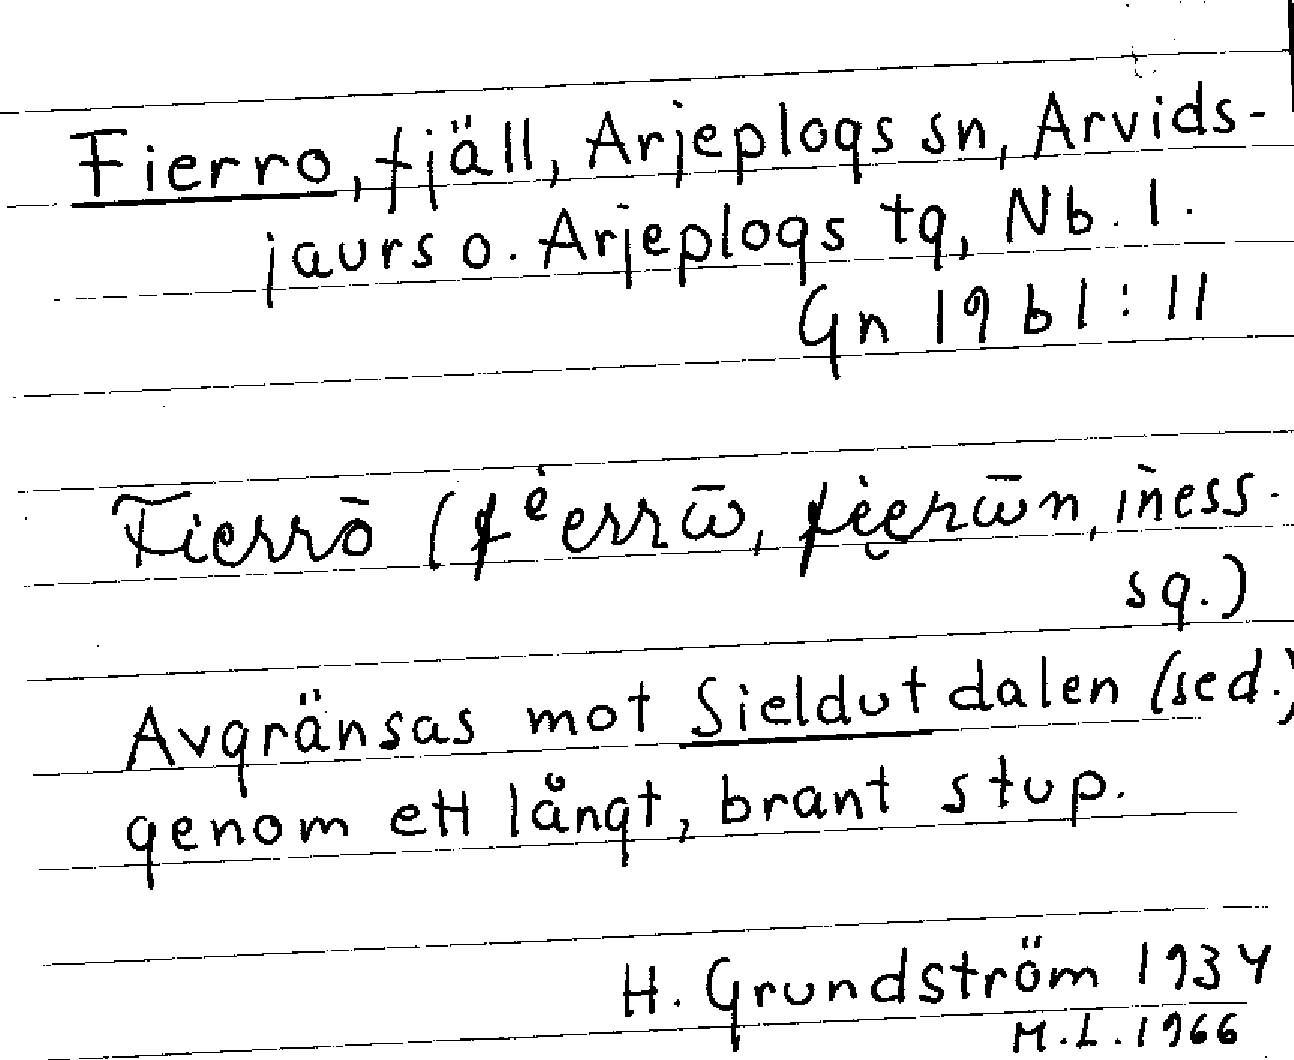 Fierro, fjäll, Arjeplogs sn, Arvids-
jaurs o. Arjeplogs tg, Nb. l.
Gn 19 b 1 : 11
Fierrō (fėerrω̄, fėe̯rω̄n, iness.
sg.)
Avgränsas mot Sieldutdalen (sed.)
genom ett långt, brant stup.
H. Grundström 1934
M.L. 1966